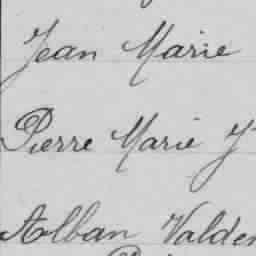 Jean Marie
Pierre Marie
Alban